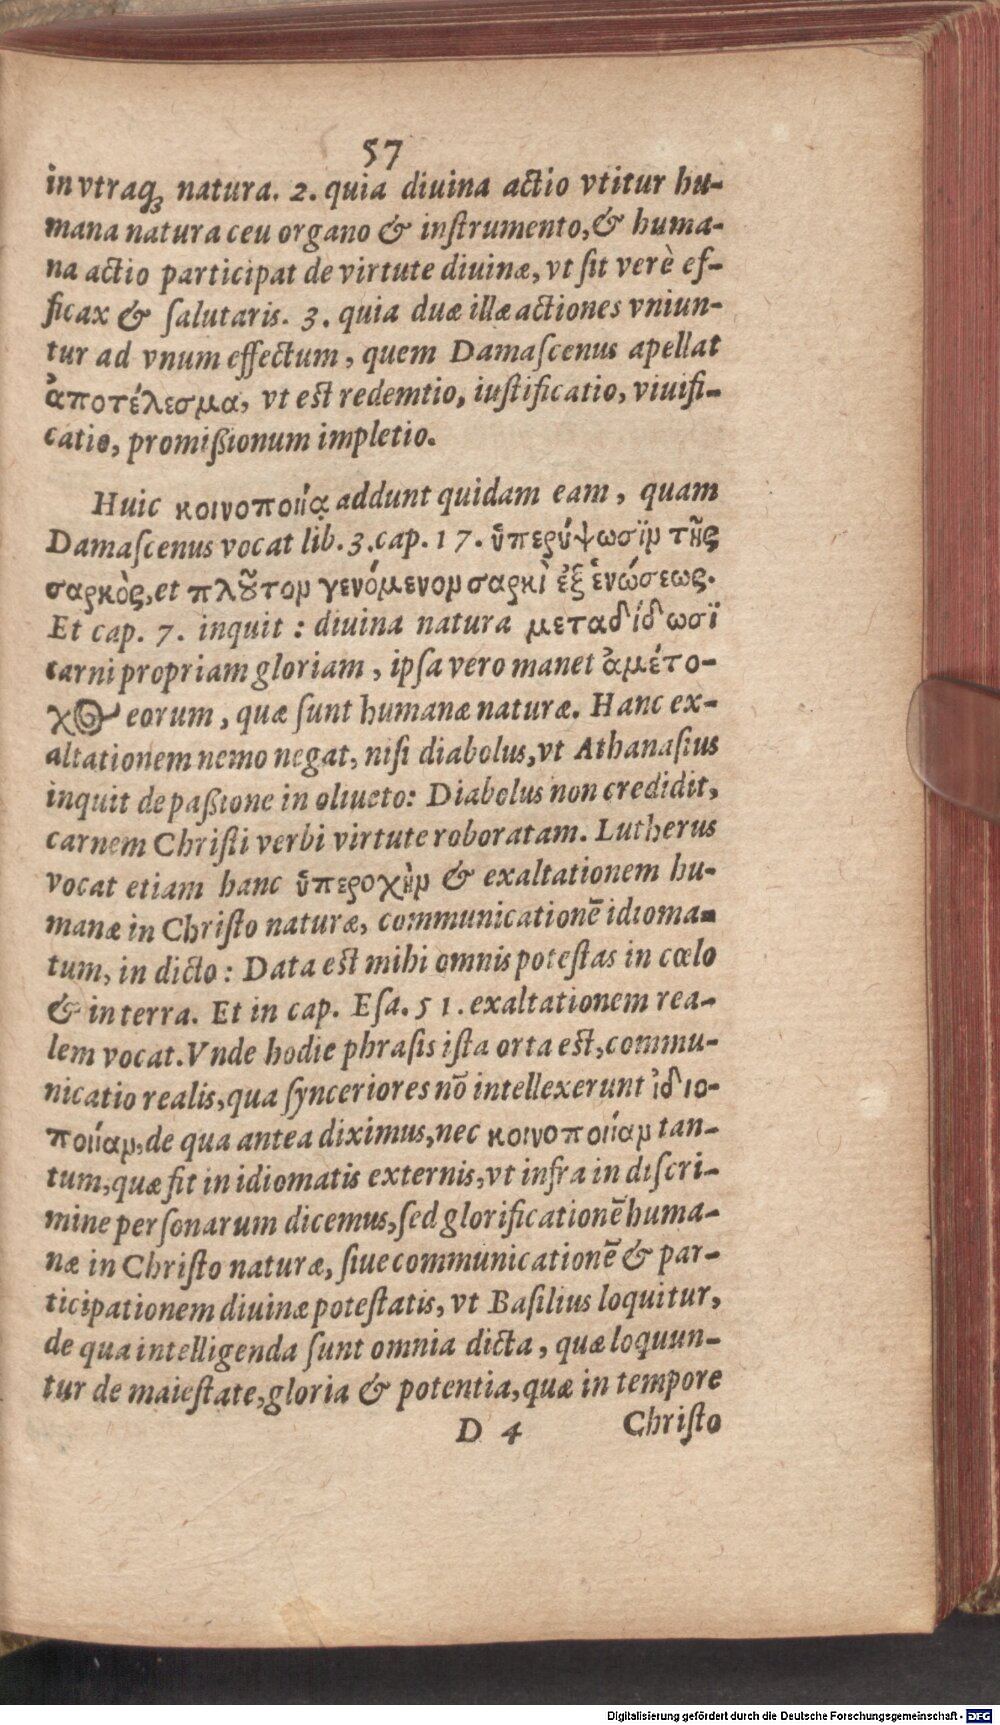 57
in vtraq́ꝫ natura. 2. quia diuina actio vtitur hu-
mana natura ceu organo & inſtrumento, & huma-
na actio participat de virtute diuinæ, vt ſit verè ef-
ficax & ſalutaris. 3. quia duæ illæ actiones vniun-
tur ad vnum effectum, quem Damaſcenus apellat
ἀποτέλεσμα, vt est redemtio, iuſtificatio, viuifi-
catio, promißionum impletio.
Huic κοινοποιία addunt quidam eam, quam
Damaſcenus vocat lib. 3. cap. 17. ὑπερύψωσιν τῆς
σαρκὸς, et πλοῦτον γενόμενον σαρκὶ ἐξ ἑνώσεως.
Et cap. 7. inquit : diuina natura μεταδίδωσι
carni propriam gloriam, ipſa vero manet ἀμέτο-
χος eorum, quæ ſunt humanæ naturæ. Hanc ex-
altationem nemo negat, niſi diabolus, vt Athanaſius
inquit de paßione in oliueto: Diabolus non credidit,
carnem Chriſti verbi virtute roboratam. Lutherus
vocat etiam hanc ὑπεροχὴν & exaltationem hu-
manæ in Chriſto naturæ, communicationē idioma-
tum, in dicto : Data est mihi omnis poteſtas in cœlo
& in terra. Et in cap. Eſa. 51. exaltationem rea-
lem vocat. Vnde hodie phraſis iſta orta est, commu-
nicatio realis, qua ſynceriores nō intellexerunt ἰδιο-
ποιίαν, de qua antea diximus, nec κοινοποιίαν tan-
tum, quæ fit in idiomatis externis, vt infra in diſcri-
mine perſonarum dicemus, ſed glorificationē huma-
næ in Chriſto naturæ, ſiue communicationē & par-
ticipationem diuinæ poteſtatis, vt Baſilius loquitur,
de qua intelligenda ſunt omnia dicta, quæ loquun-
tur de maieſtate, gloria & potentia, quæ in tempore
D 4 Chriſto
Digitalisierung gefördert durch die Deutsche Forschungsgemeinschaft - DFG